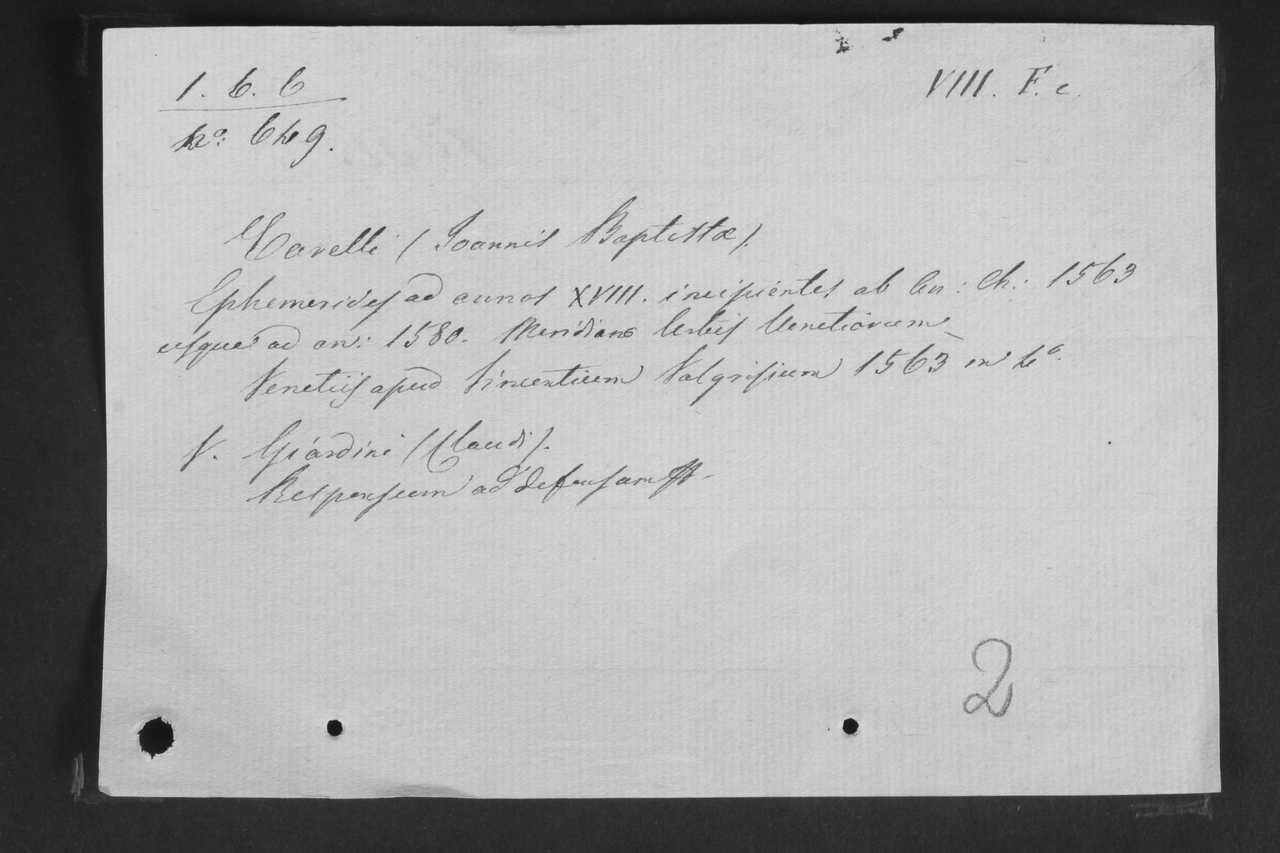 1. 6. 6
VIII. F. c.
4o: 649.
Carelli (Joannis Baptistæ).
Ephemerides ad annos XVIII. incipientes ab An: Ch: 1563
usque ad an: 1580. Meridiano Urbis Venetiarum
Venetiis apud Vincentium Valgrisium 1563 in 4o.
V. Giardini (Claudi).
Responsum ad defensam
2